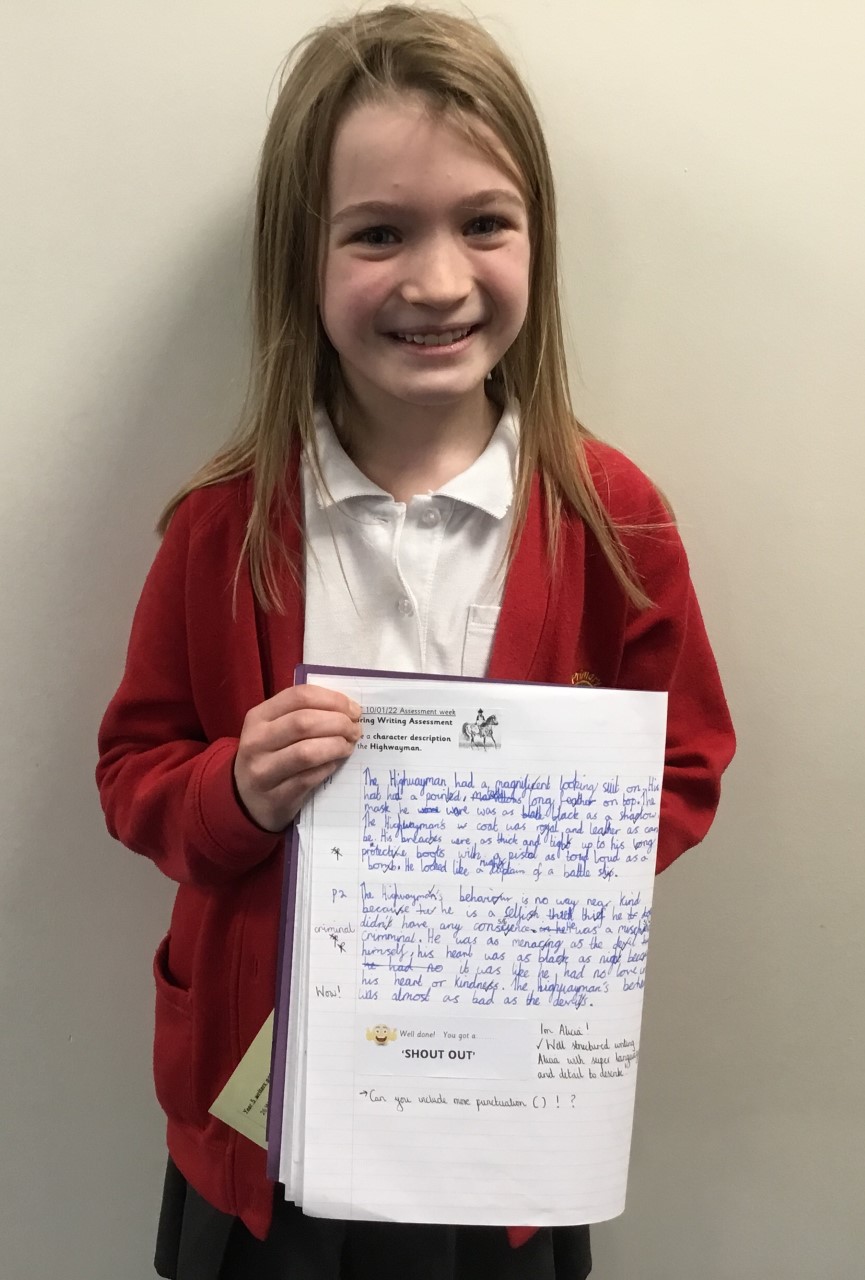 10/01/22 Assessment week
Writing Assessment
a character description
the Highwayman.
The Highwayman had a magnificent looking suit on. His
hat had a pointed, long feather on top. The
mask he wore was as black as a shadow
The Highwayman's coat was royal and leather as can
be. His breaches were as thick and tight up to his long
protective boots with a pistol as loud as a
bomb. He looked like a captain of a battle ship.
P2
The Highwayman's behaviour is no way near kind
because he is a selfish thief he
didn't have any was a
criminal
criminal. He was as menacing as the devil
himself, his heart was as black as night
he had no it was like he had no love in
his heart or kindness. The highwayman's
Wow!
was almost as bad as the devil's.
Well done! You got a
'SHOUT OUT'
Alicia!
✓ Well structured writing
Alicia with super language
and detail to describe
→ Can you include more punctuation () ! ?
Primary
Year 5 writers